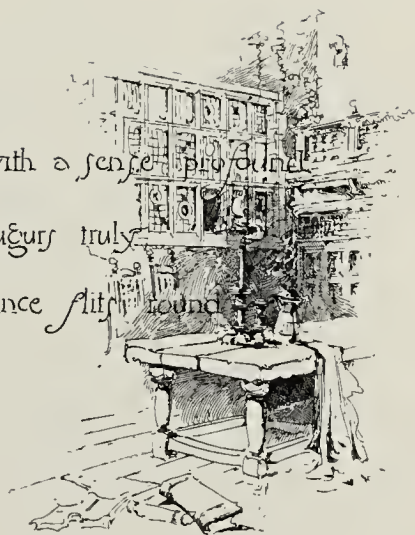 with a sense profound
ugurs truly
nce flits round